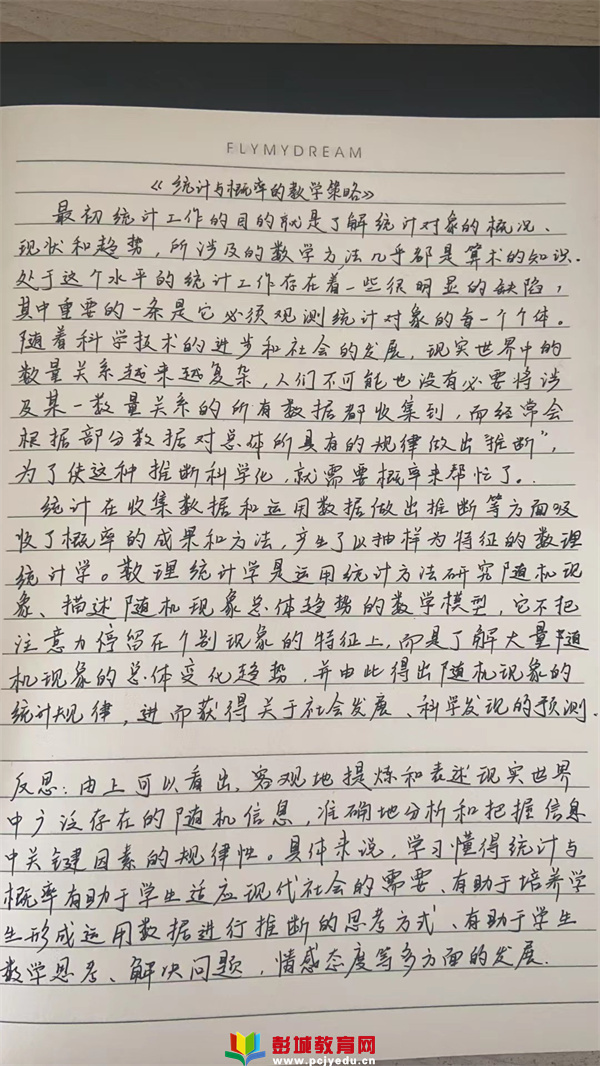 FLYMYDREAM
《统计与概率的数学策略》
最初统计工作的目的就是了解统计对象的概况、
现状和趋势，所涉及的数学方法几乎都是算术的知识.
处于这个水平的统计工作存在着一些很明显的缺陷，
其中重要的一条是它必须观测统计对象的每一个个体。
随着科学技术的进步和社会的发展，现实世界中的
数量关系越来越复杂，人们不可能也没有必要将涉
及某一数量关系的所有数据都收集到，而经常会
根据部分数据对总体所具有的规律做出“推断”，
为了使这种推断科学化，就需要概率来帮忙了。
统计在收集数据和运用数据做出推断等方面吸
收了概率的成果和方法，产生了以抽样为特征的数理
统计学。数理统计学是运用统计方法研究随机现
象、描述随机现象总体趋势的数学模型，它不把
注意力停留在个别现象的特征上，而是了解大量随
机现象的总体变化趋势，并由此得出随机现象的
统计规律，进而获得关于社会发展、科学发现的预测.
反思：由上可以看出，客观地提炼和表述现实世界
中广泛存在的随机信息，准确地分析和把握信息
中关键因素的规律性。具体来说，学习懂得统计与
概率有助于学生适应现代社会的需要、有助于培养学
生形成运用数据进行推断的思考方式、有助于学生
数学思考、解决问题，情感态度等多方面的发展.
彭城教育网
www.pcjyedu.cn